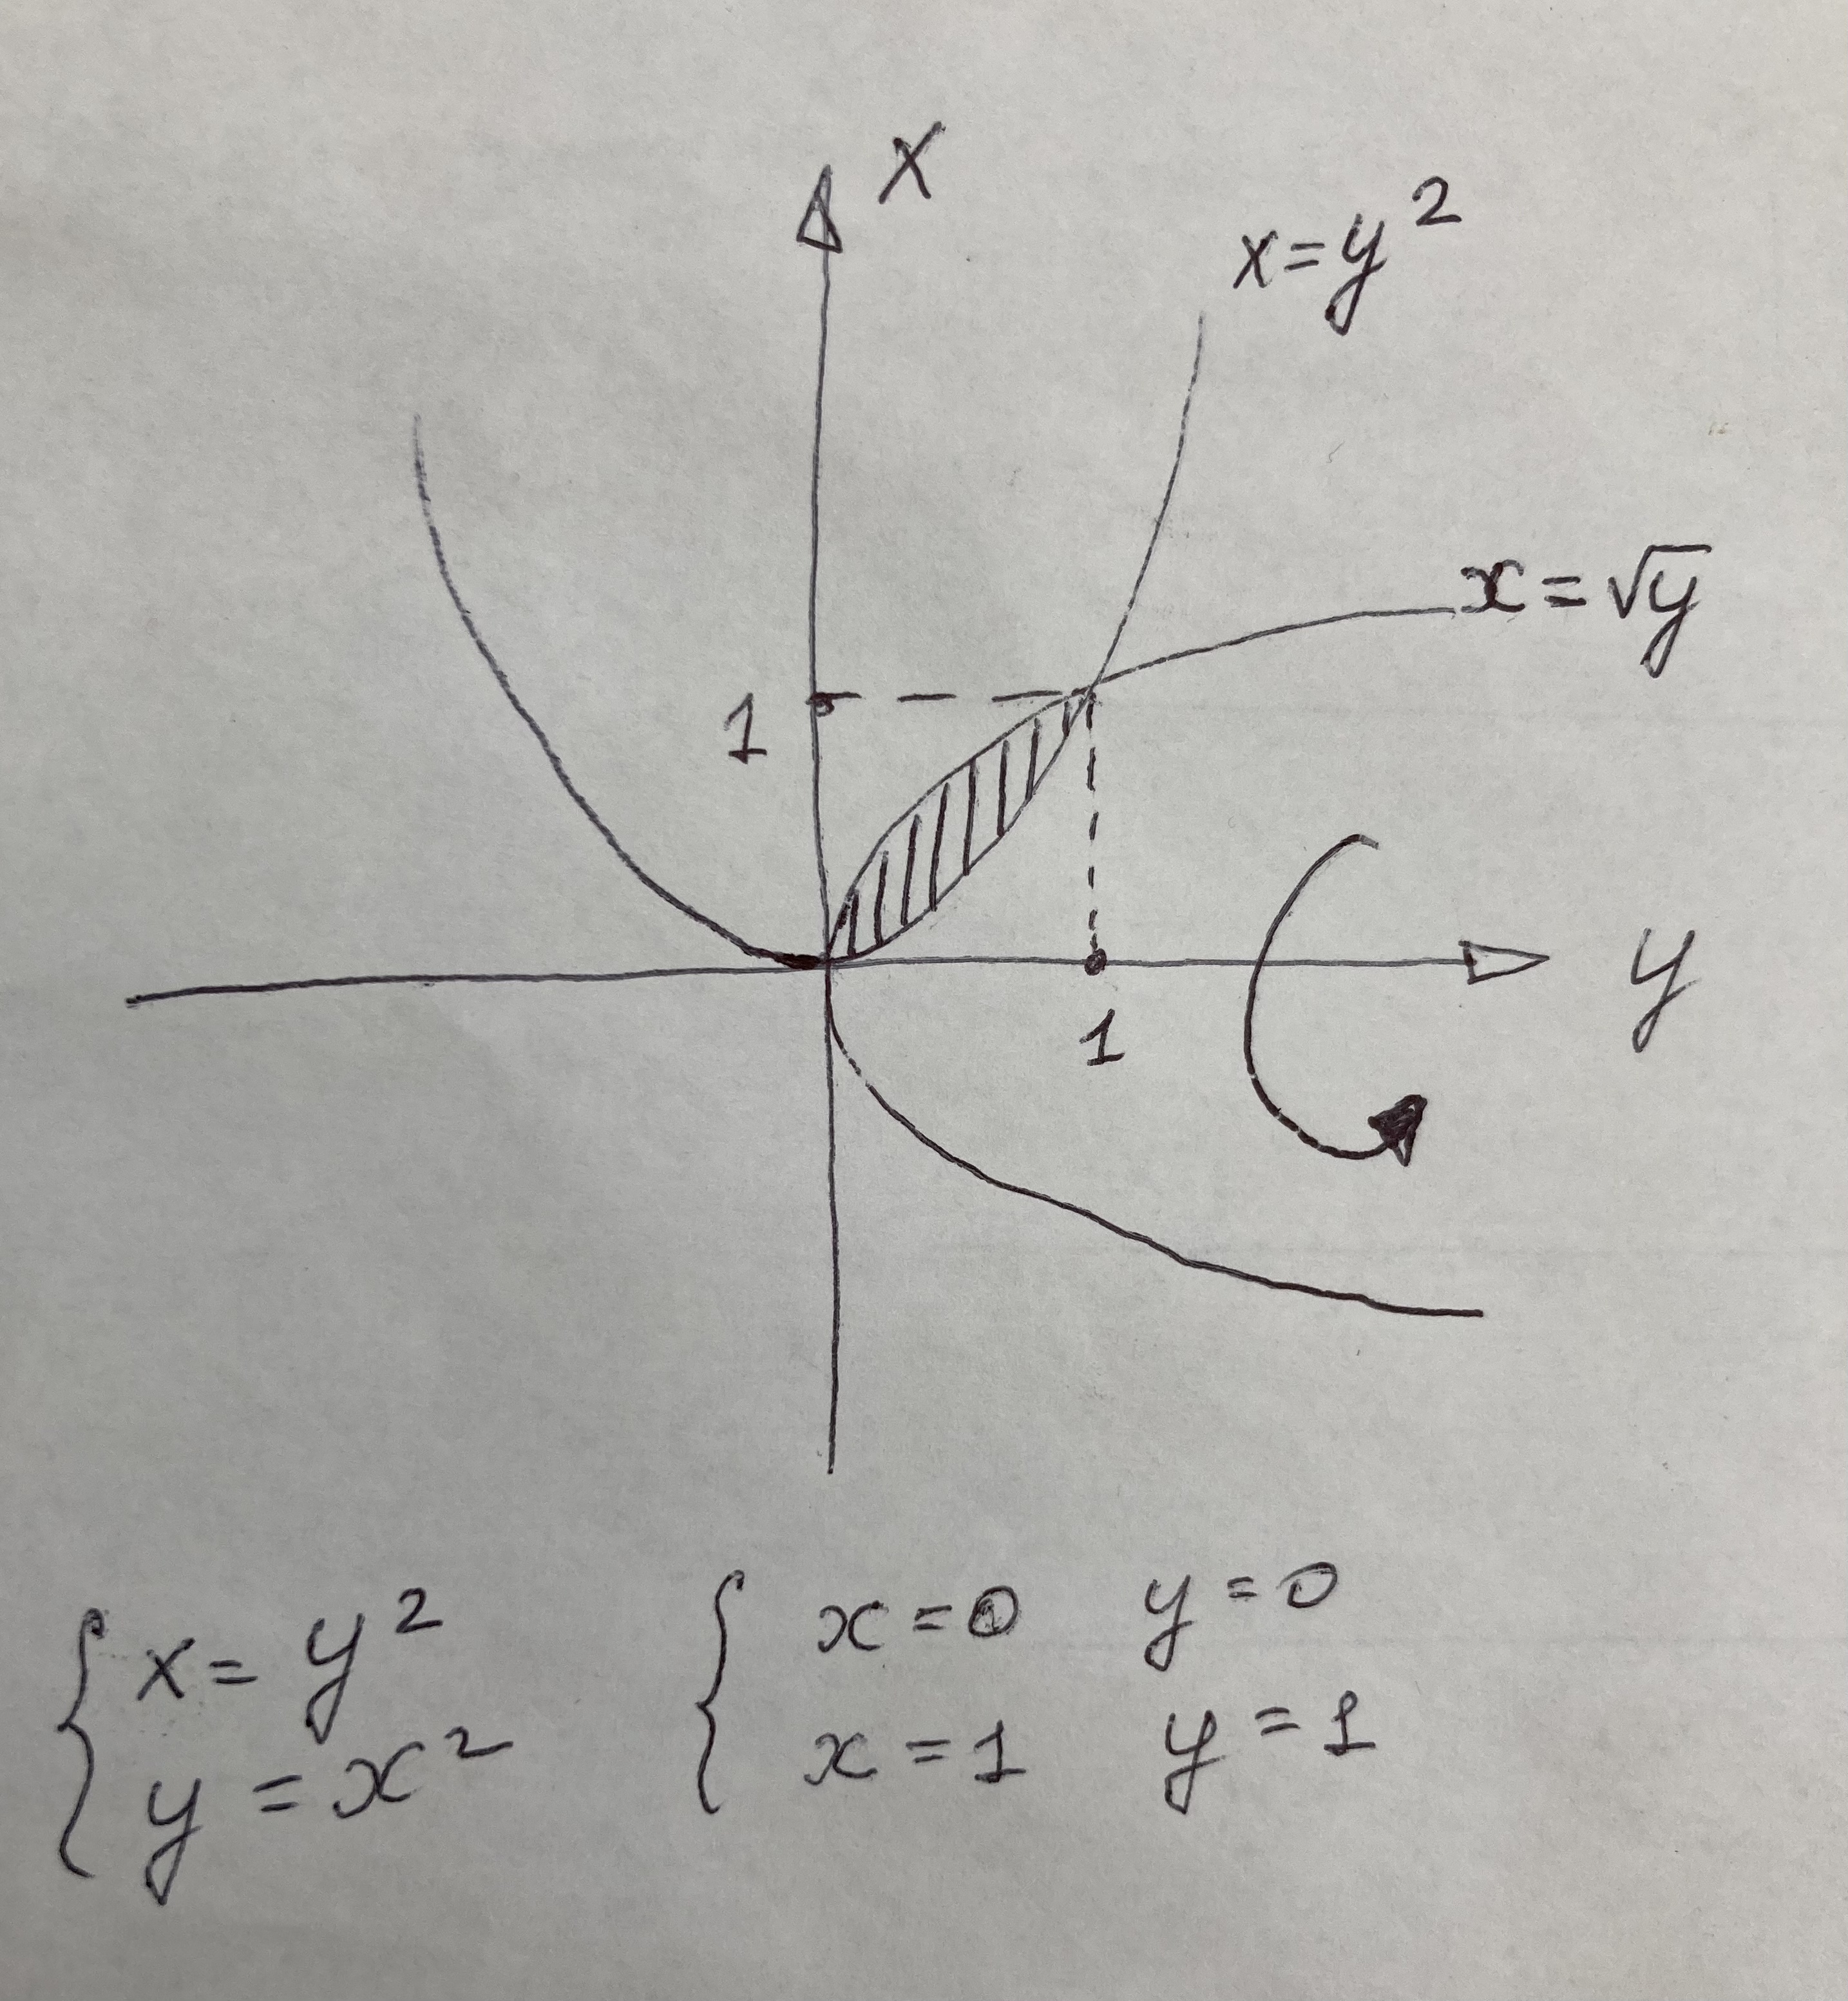 x
x=y²
x=√y
1
y
1
{ x=y²
y=x²
{ x=0 y=0
x=1 y=1